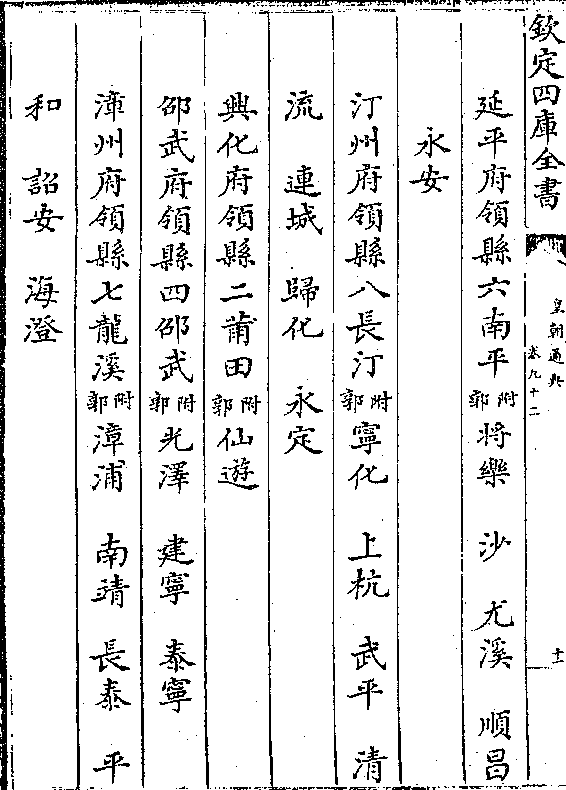 欽定四庫全書
皇朝通典
卷九十二
十一
延平府領縣六南平附郭將樂 沙 尤溪 順昌
永安
汀州府領縣八長汀附郭寧化 上杭 武平 清
流 連城 歸化 永定
興化府領縣二莆田附郭仙遊
邵武府領縣四邵武附郭光澤 建寧 泰寧
漳州府領縣七龍溪附郭漳浦 南靖 長泰 平
和 詔安 海澄